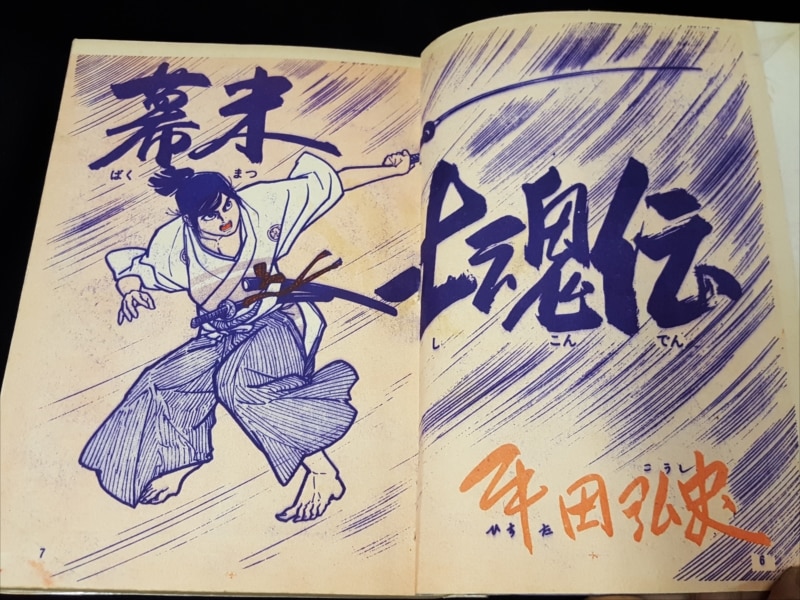 幕末
ばく まつ
士魂伝
し こん でん
平田弘史
ひらた こうし
7
6